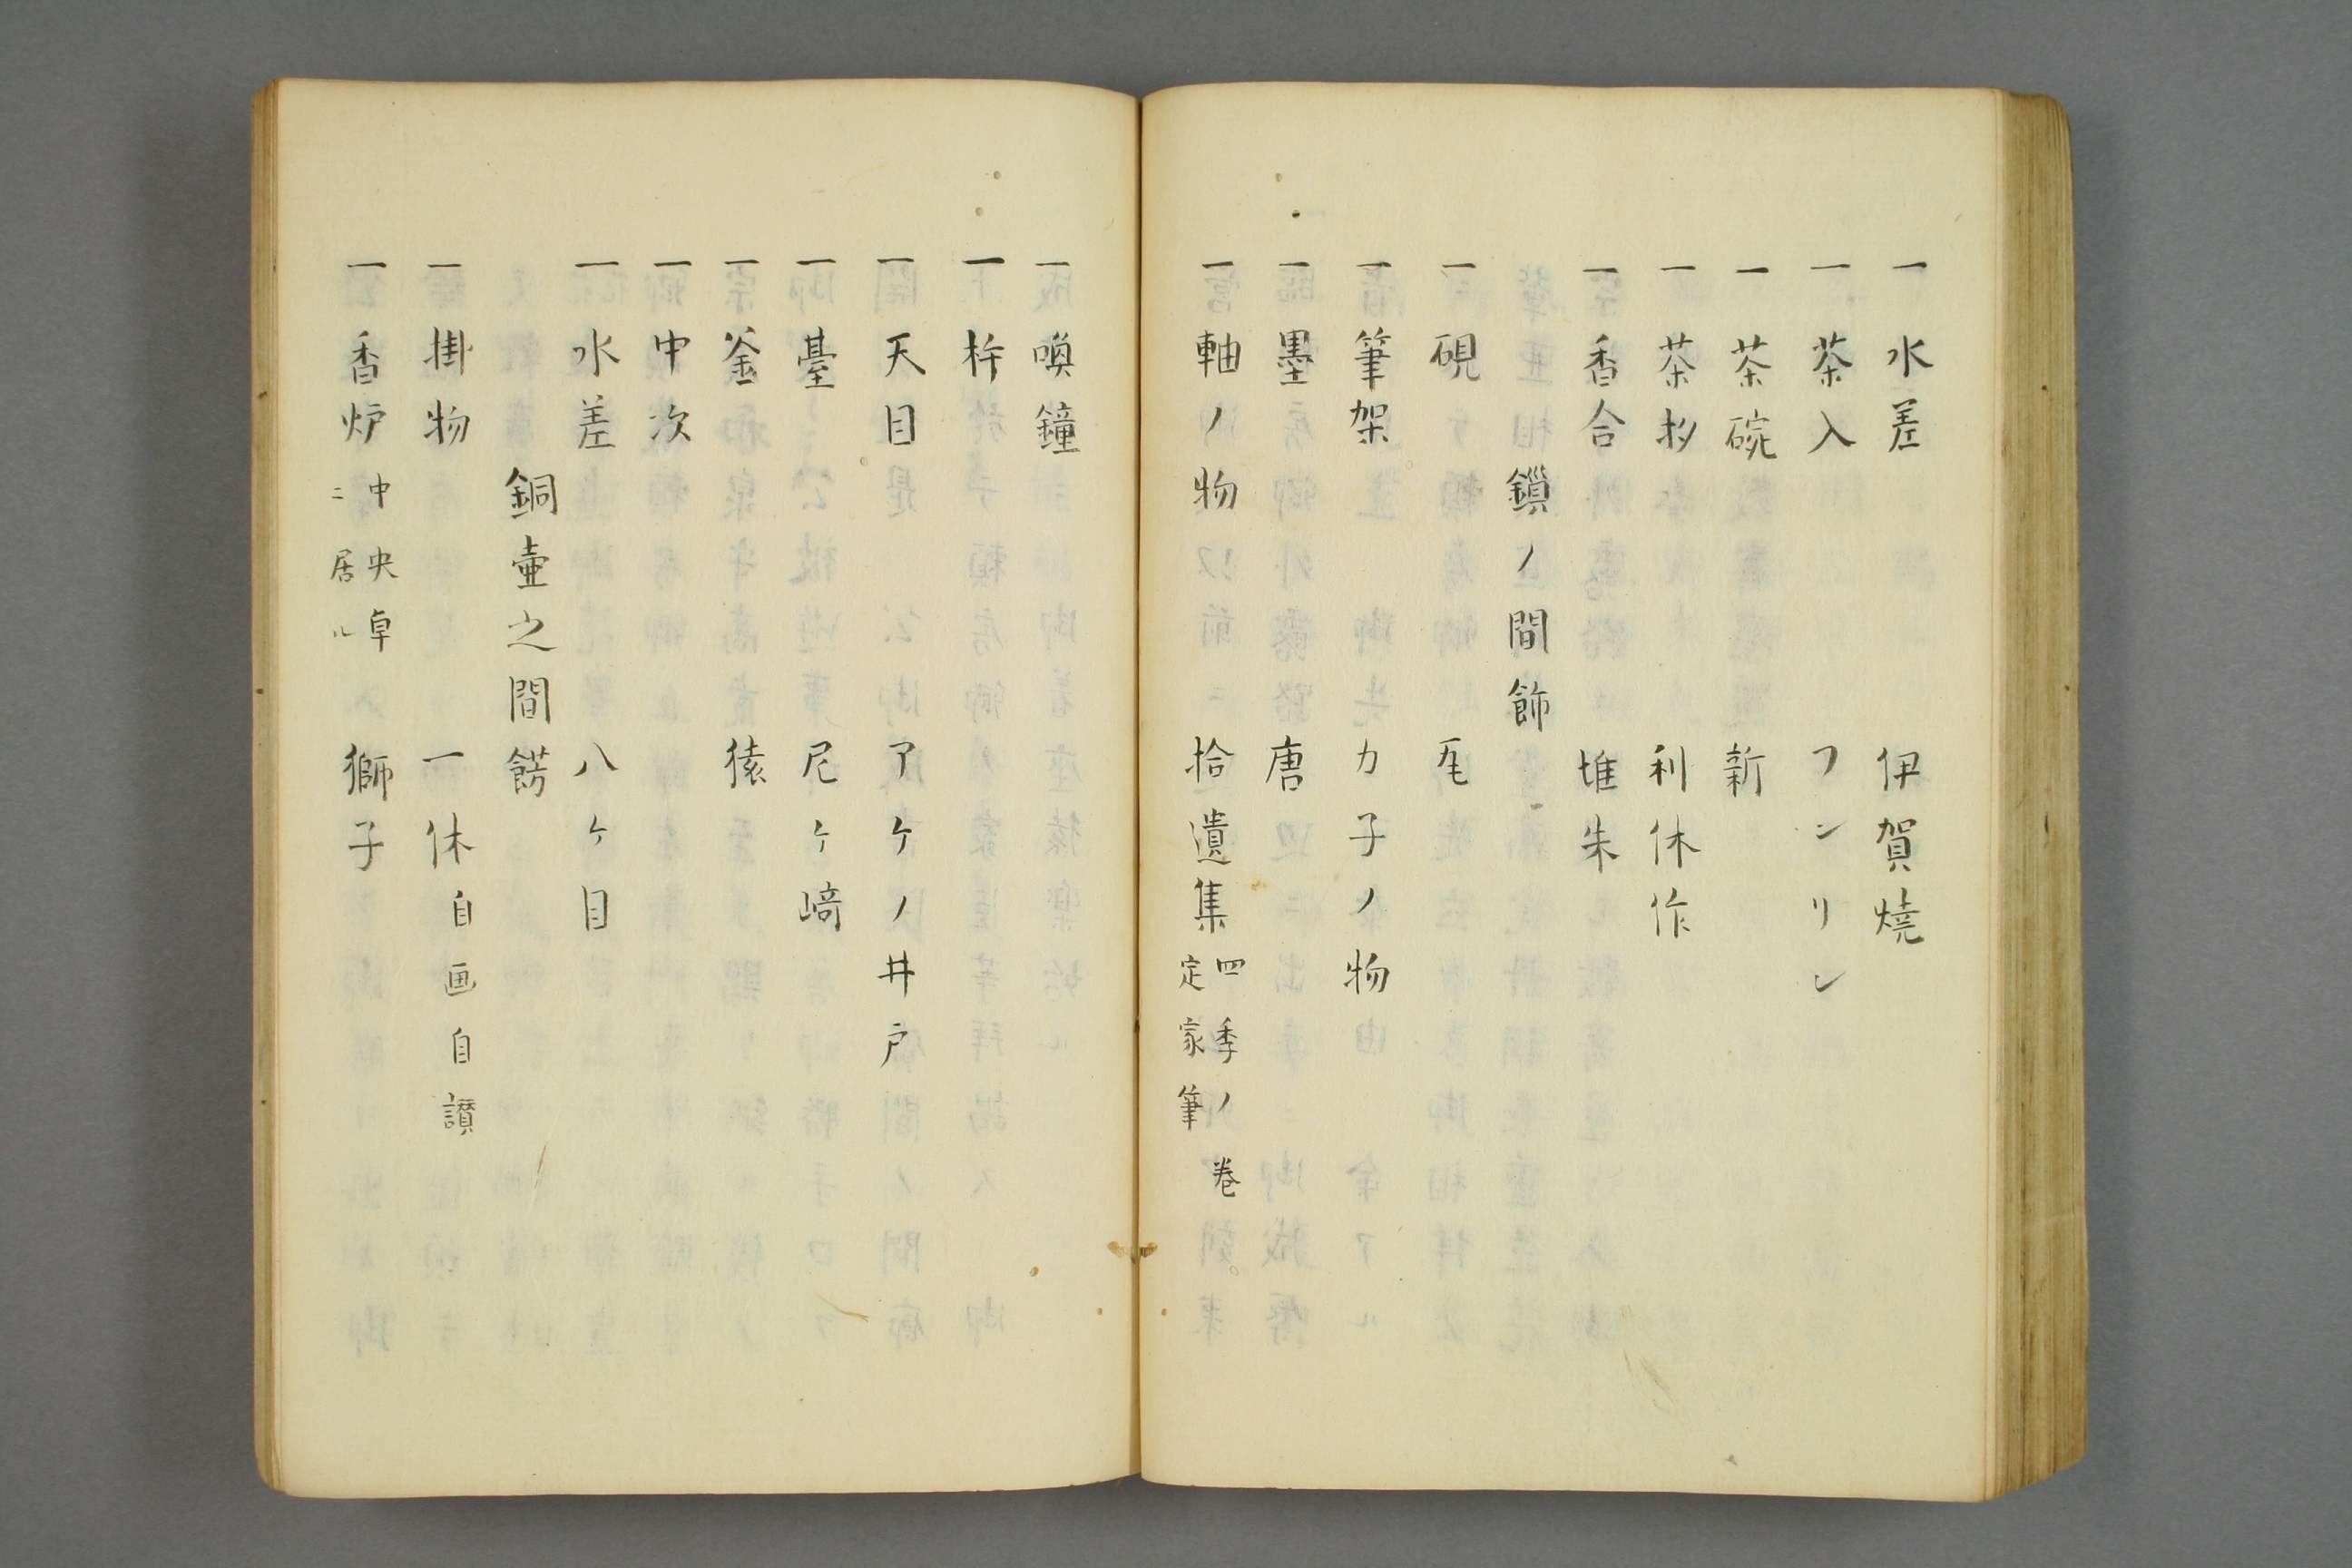 一水差 伊賀燒
一茶入 フンリン
一茶碗 新
一茶杉 利休作
一香合 堆朱
鎖ノ間飾
一硯 瓦
一筆架 カ子ノ物
一墨 唐
一軸ノ物 拾遺集 四季ノ巻
定家筆
一喚鐘
一杵
一天目 アケノ井戸
一臺 尼ヶ﨑
一釜 猿
一中次
一水差 八ヶ目
銅壷之間餝
一掛物 一休自画自讃
一香炉 中央卓
ニ居ル 獅子